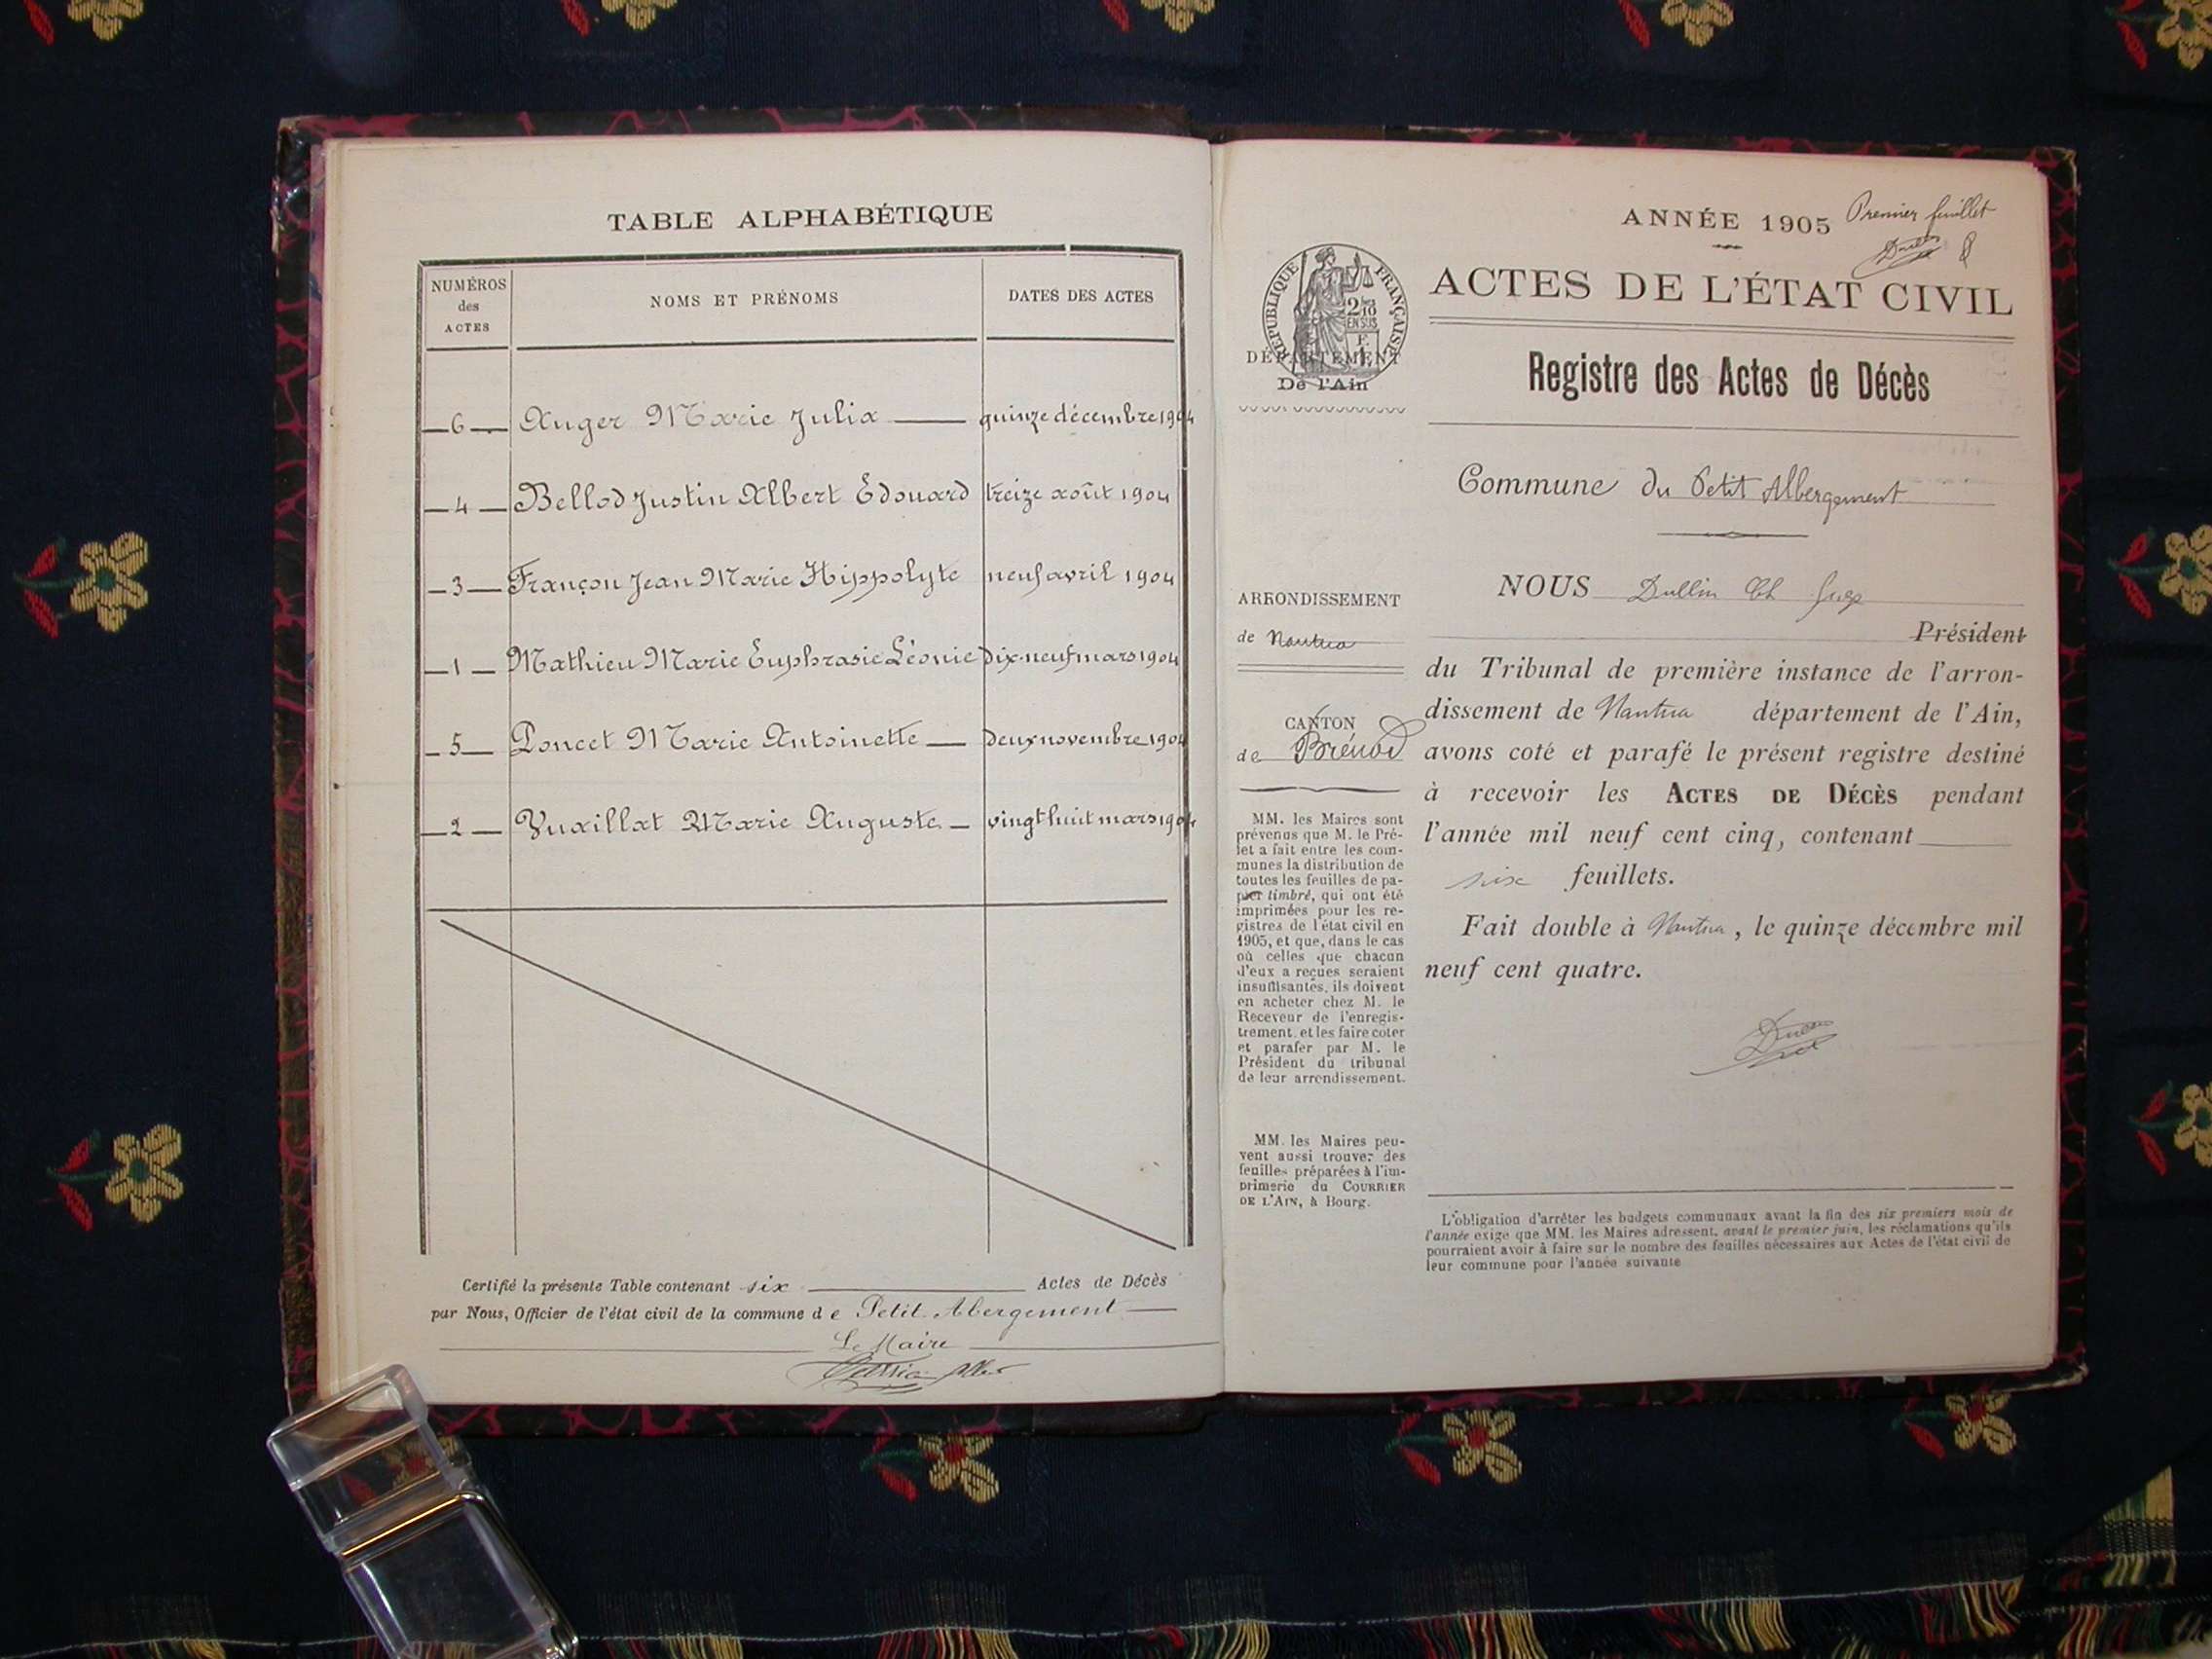 TABLE ALPHABÉTIQUE
NUMÉROS
des
ACTES
NOMS ET PRÉNOMS
DATES DES ACTES
6 Auger Marie Julia quinze décembre 1904
4 Bellod Justin Albert Edouard treize août 1904
3 Françon Jean Marie Hippolyte neuf avril 1904
1 Mathieu Marie Euphrasie Léonie dix-neuf mars 1904
5 Poncet Marie Antoinette deux novembre 1904
2 Vuaillat Marie Auguste vingt huit mars 1904
Certifié la présente Table contenant six Actes de Décès
par Nous, Officier de l'état civil de la commune d e Petit Abergement
Le Maire
ANNÉE 1905 Premier feuillet
ACTES DE L'ÉTAT CIVIL
Registre des Actes de Décès
RÉPUBLIQUE FRANÇAISE
2/10
EN SUS
DÉPARTEMENT
De l'Ain
Commune du Petit Abergement
ARRONDISSEMENT
de Nantua
CANTON
de Brénod
MM. les Maires sont
prévenus que M. le Pré-
fet a fait entre les com-
munes la distribution de
toutes les feuilles de pa-
pier timbré, qui ont été
imprimées pour les re-
gistres de l'état civil en
1905, et que, dans le cas
où celles que chacun
d'eux a reçues seraient
insuffisantes, ils doivent
en acheter chez M. le
Receveur de l'enregis-
trement, et les faire coter
et parafer par M. le
Président du tribunal
de leur arrondissement.
MM. les Maires peu-
vent aussi trouver des
feuilles préparées à l'im-
primerie du COURRIER
DE L'AIN, à Bourg.
NOUS Dullin
Président
du Tribunal de première instance de l'arron-
dissement de Nantua département de l'Ain,
avons coté et parafé le présent registre destiné
à recevoir les ACTES DE DÉCÈS pendant
l'année mil neuf cent cinq, contenant
six feuillets.
Fait double à Nantua, le quinze décembre mil
neuf cent quatre.
L'obligation d'arrêter les budgets communaux avant la fin des six premiers mois de
l'année exige que MM. les Maires adressent, avant le premier juin, les réclamations qu'ils
pourraient avoir à faire sur le nombre des feuilles nécessaires aux Actes de l'état civil de
leur commune pour l'année suivante